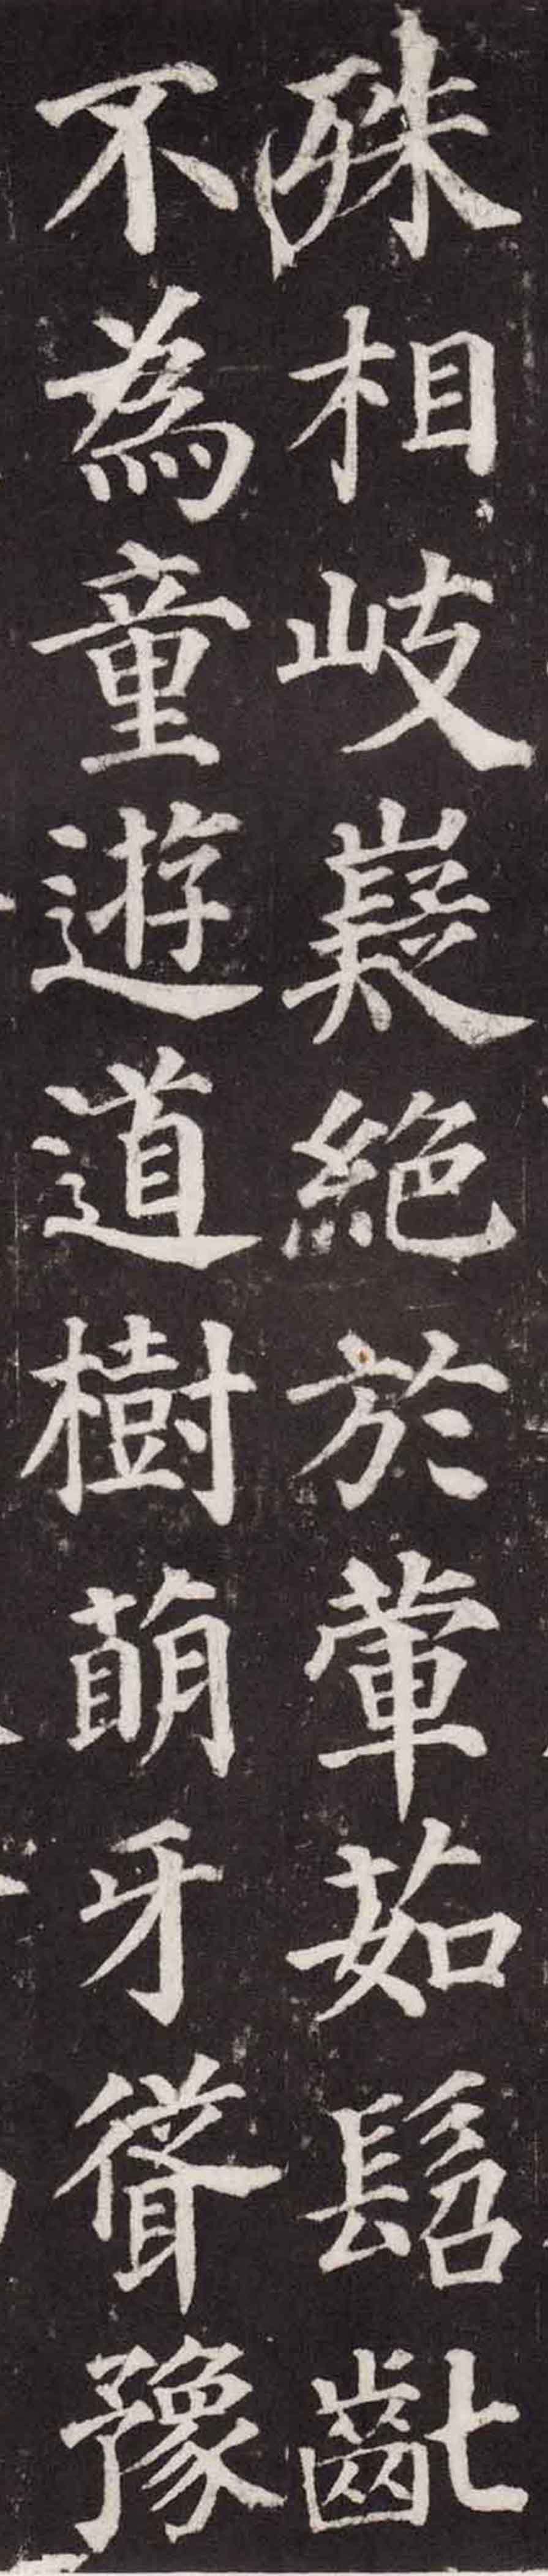 殊相岐嶷絕於葷茹髫齔
不為童遊道樹萌牙聳豫